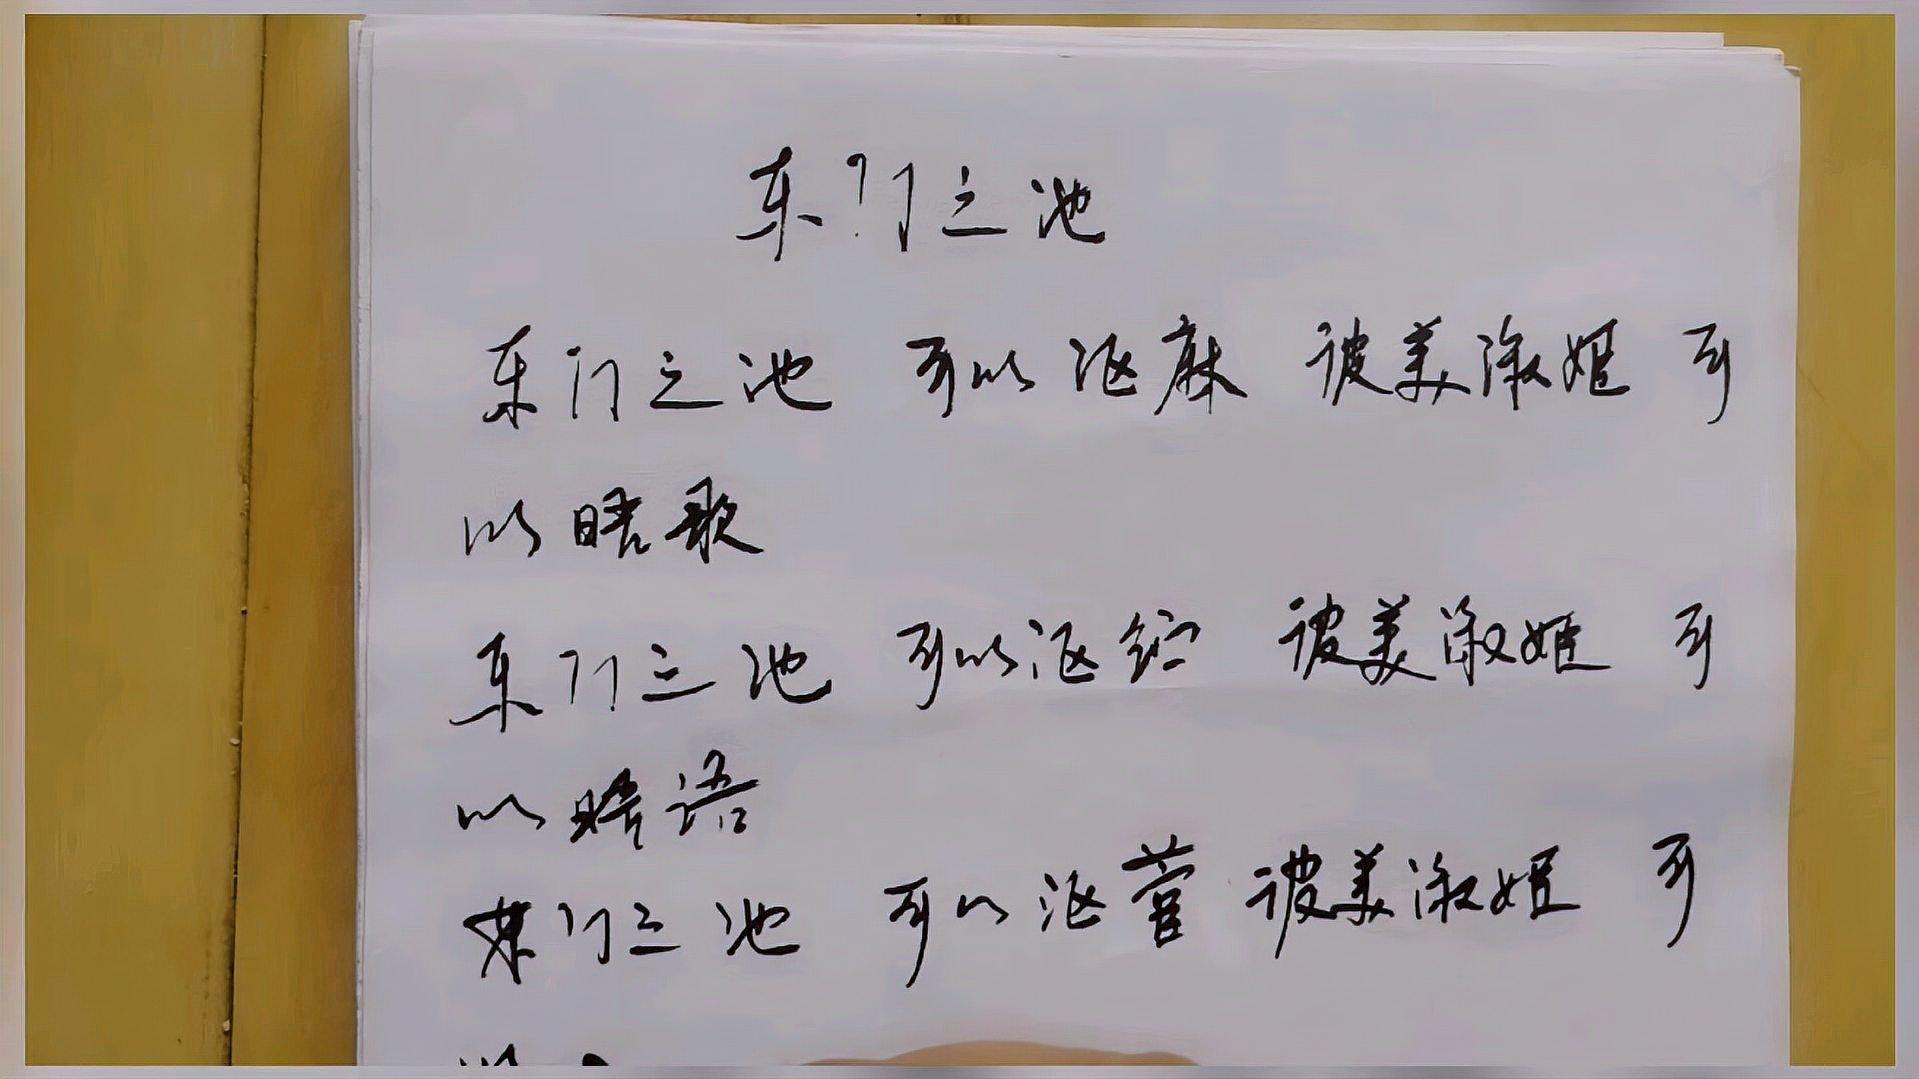 东门之池
东门之池 可以沤麻 被美淑姬 可
以晤歌
东门之池 可以沤纻 被美淑姬 可
以晤语
东门之池 可以沤菅 被美淑姬 可